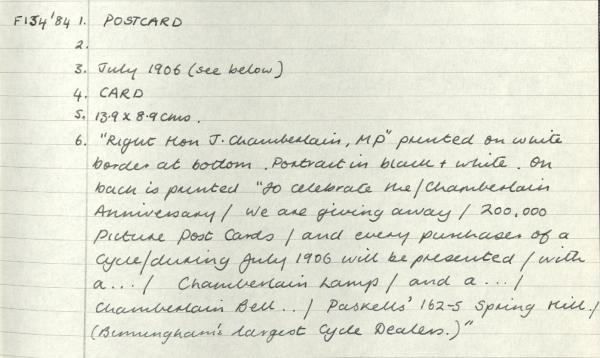 F134'84 1. POSTCARD
2.
3. July 1906 (see below)
4. CARD
5. 13.9 x 8.9 cms.
6. "Right Hon J. Chamberlain, MP" printed on white
border at bottom. Portrait in black + white. On
back is printed "To celebrate the/Chamberlain
Anniversary/ We are giving away / 200,000
Picture Post Cards / and every purchaser of a
Cycle/during July 1906 will be presented / with
a .../ Chamberlain Lamp / and a .../
Chamberlain Bell .. / Paskells' 162-5 Spring Hill./
(Birmingham's largest Cycle Dealers.)"